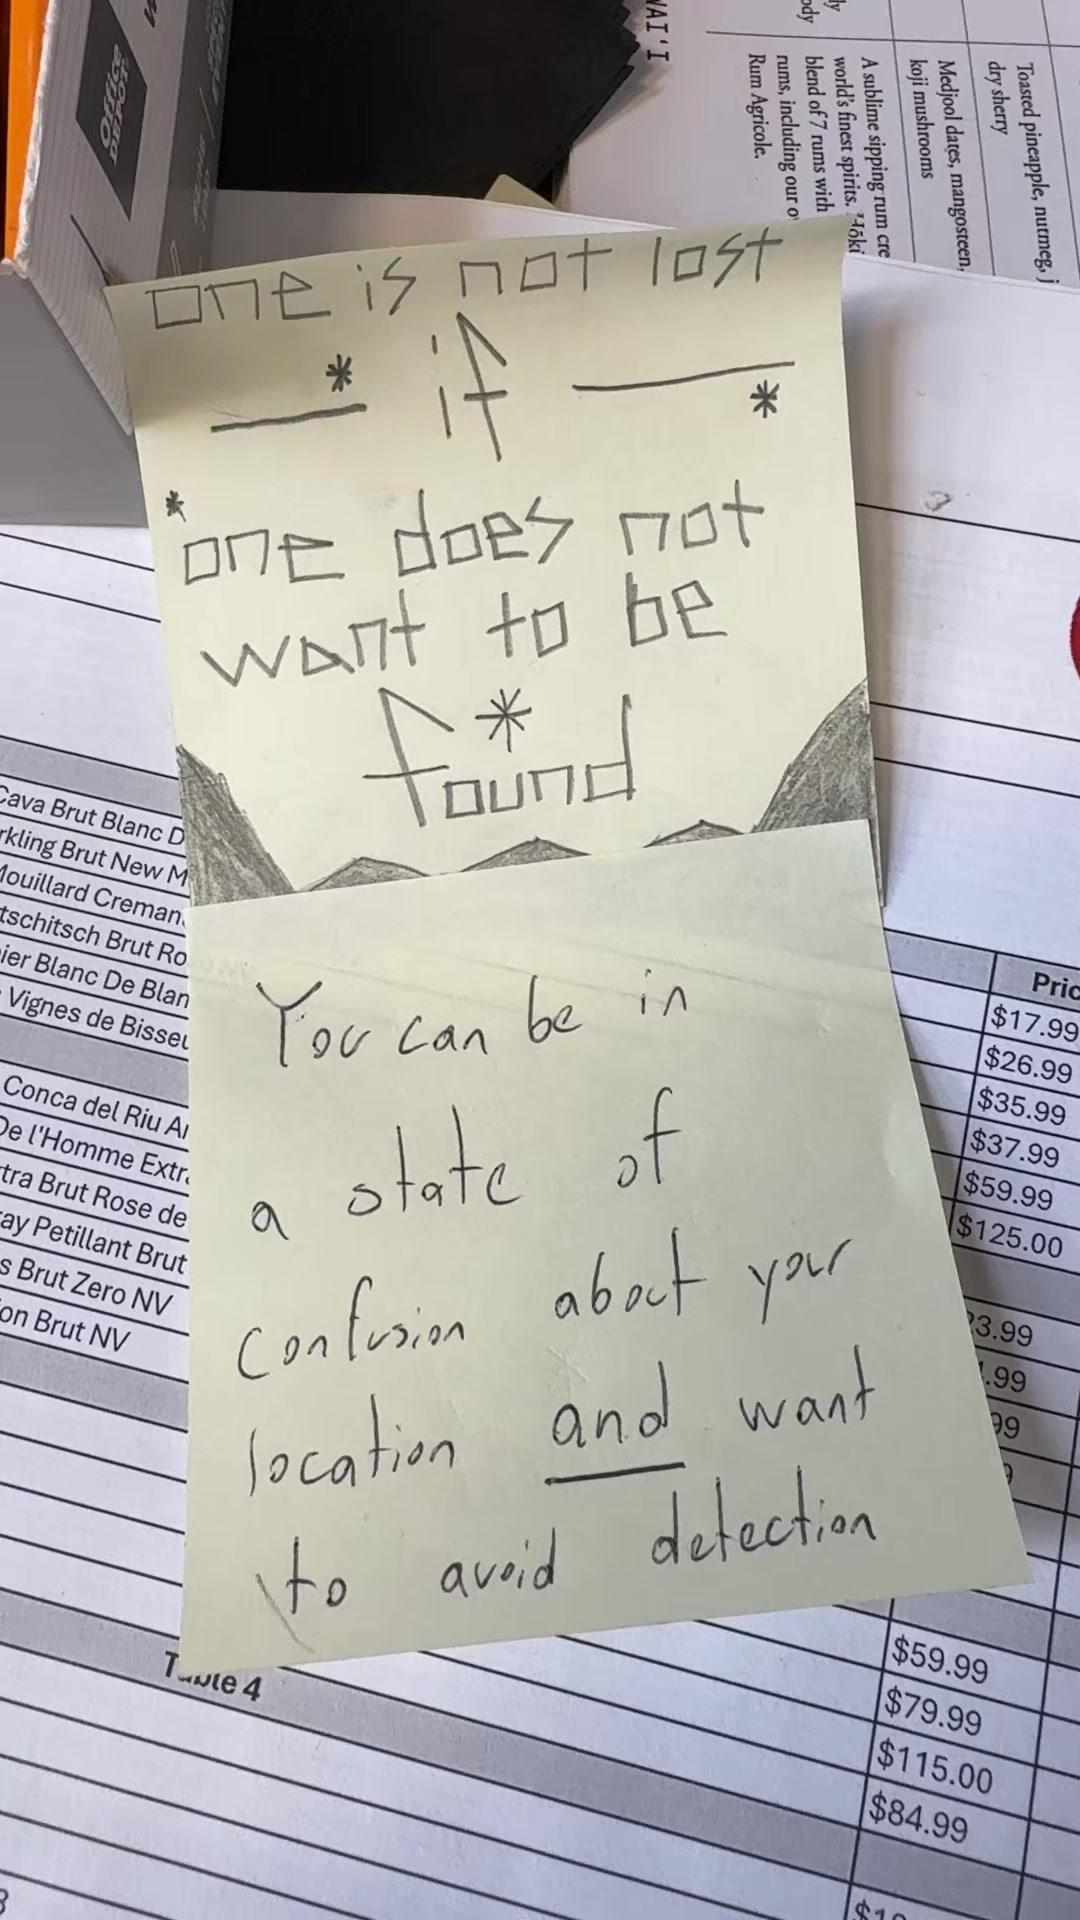 Office
DEPOT
WAI'I
Toasted pineapple, nutmeg,
dry sherry
Medjool dates, mangosteen,
koji mushrooms
A sublime sipping rum cre
world's finest spirits.
blend of 7 rums with
rums, including our o
Rum Agricole.
one is not lost
* if *
*
one does not
want to be
found *
You can be in
a state of
confusion about your
location and want
to avoid detection
Cava Brut Blanc D
rkling Brut New M
Mouillard Creman
tschitsch Brut Ro
ier Blanc De Blan
Vignes de Bisseu
Conca del Riu A
De l'Homme Extr
tra Brut Rose de
ay Petillant Brut
s Brut Zero NV
on Brut NV
Pric
$17.99
$26.99
$35.99
$37.99
$59.99
$125.00
3.99
.99
99
Table 4
$59.99
$79.99
$115.00
$84.99